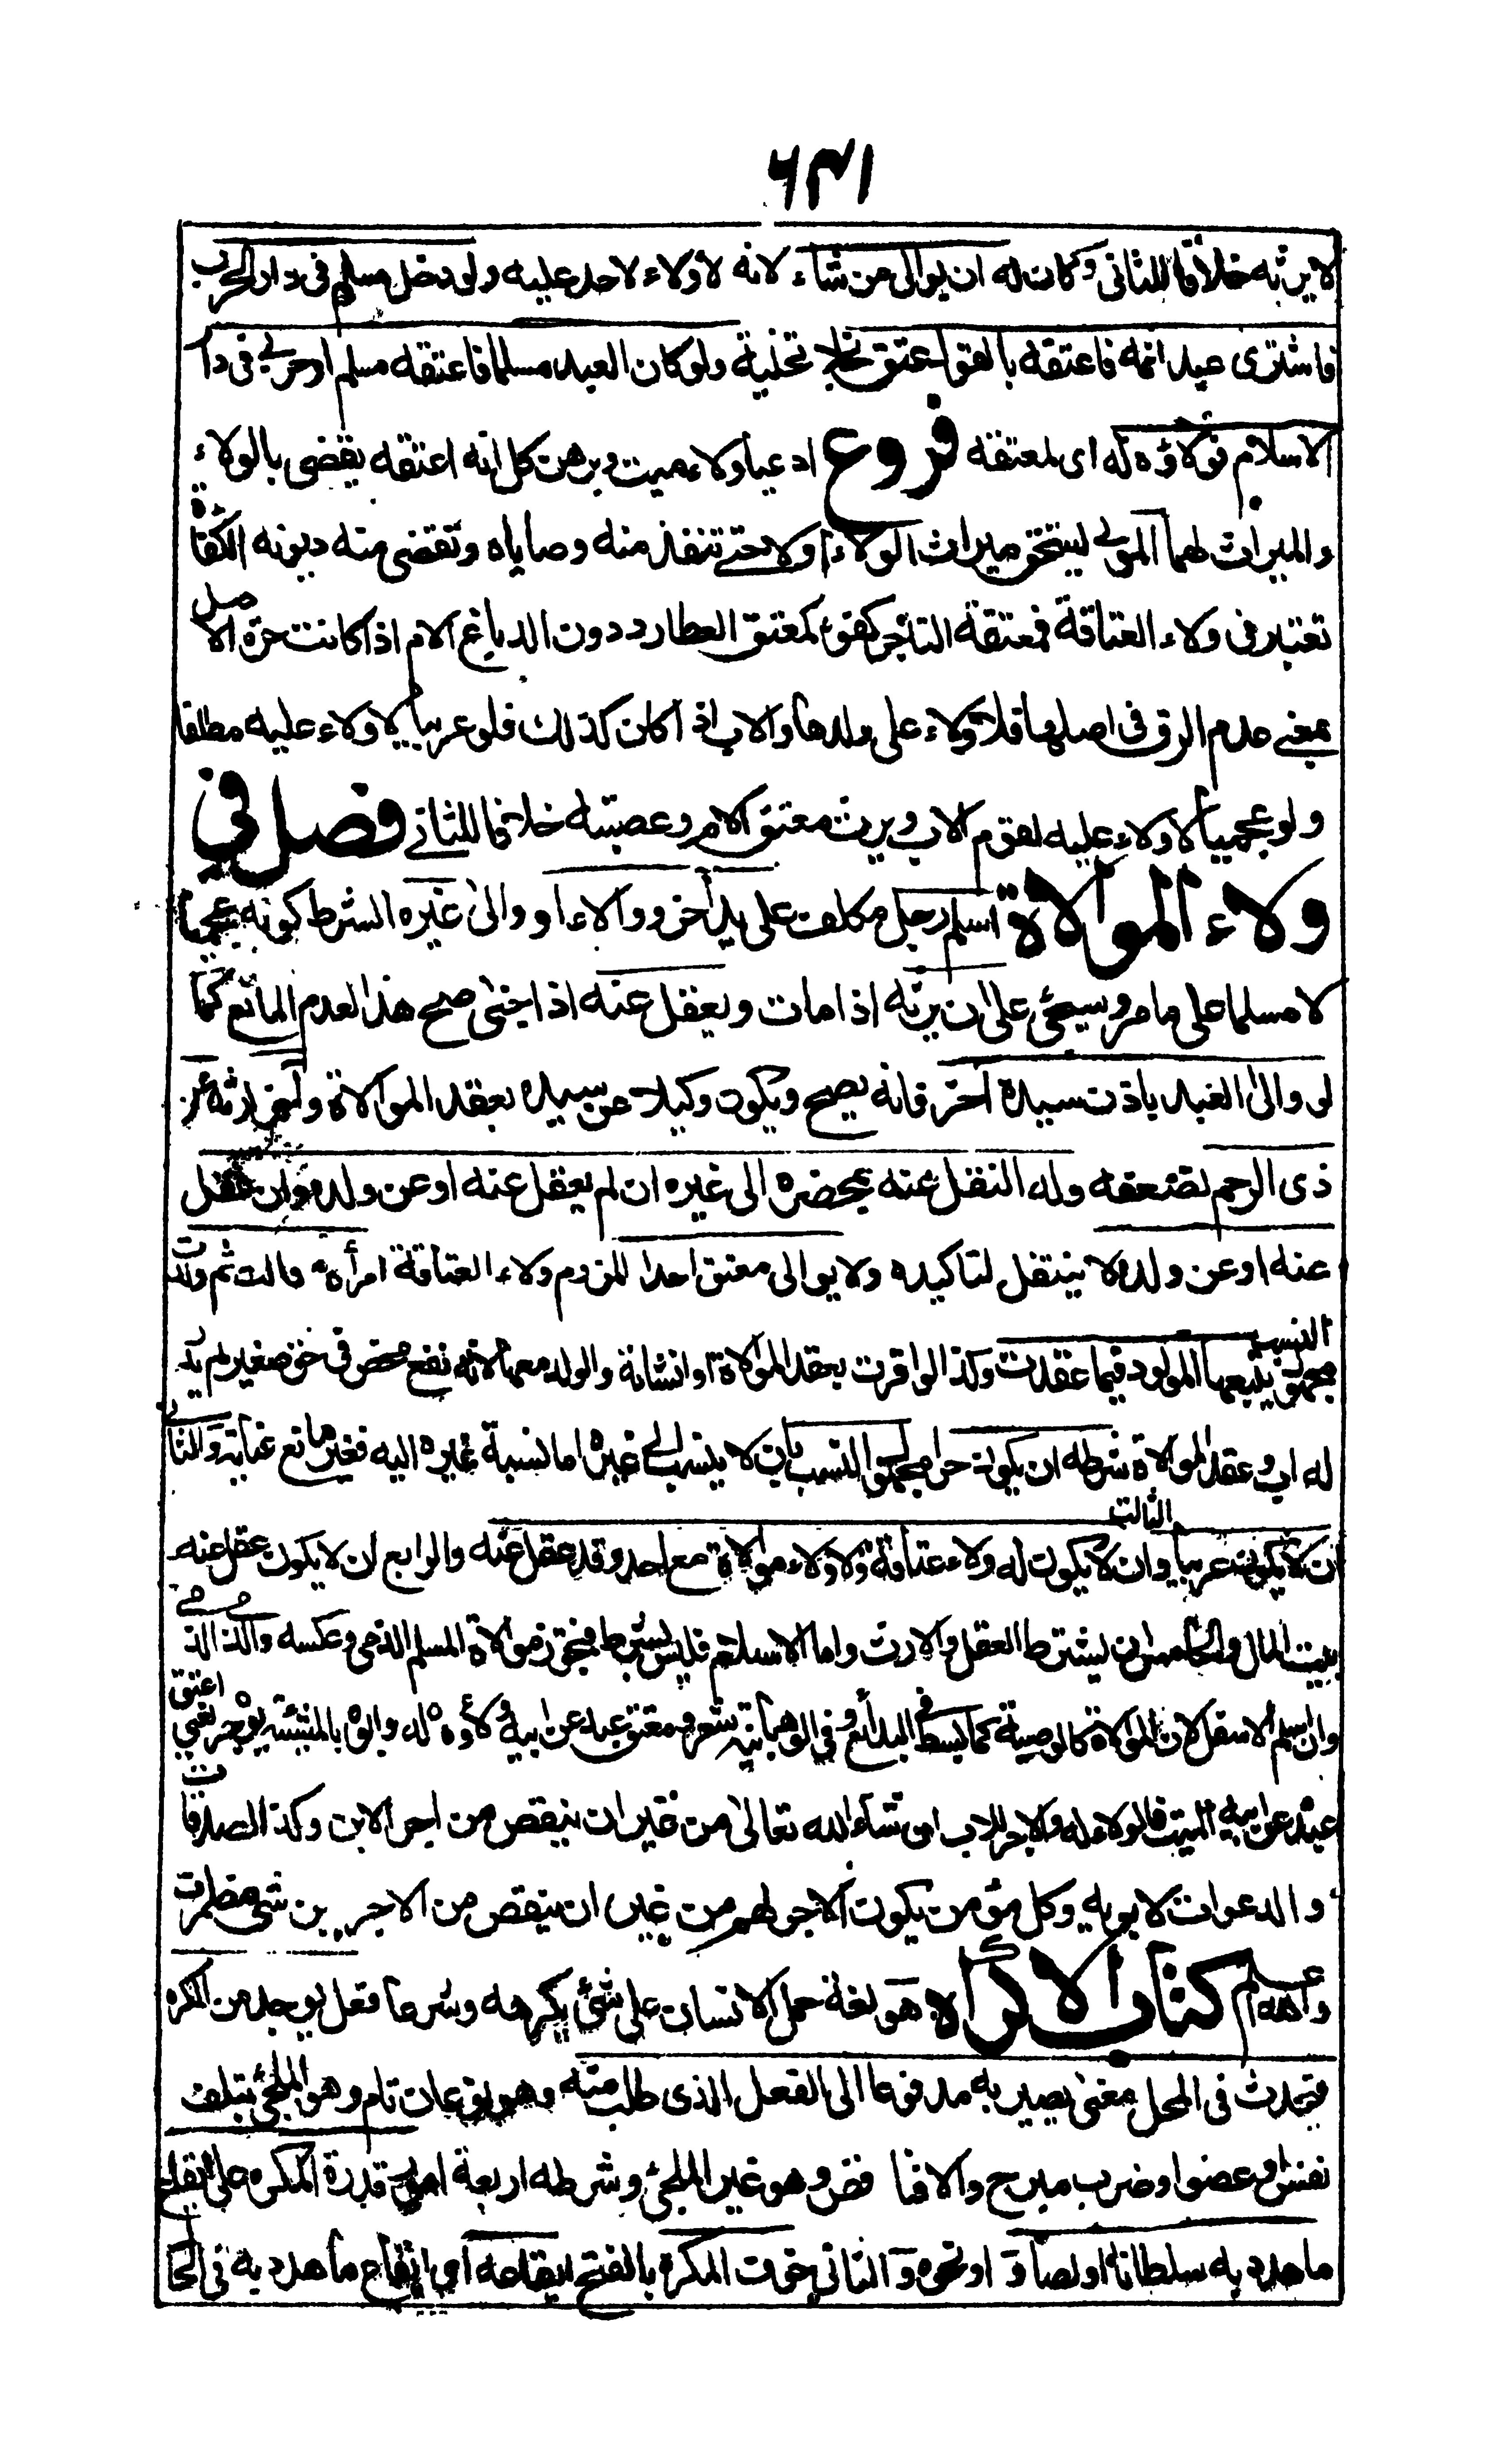 ٦٣١
لا يرثه خلافا للثانى وكان له ان يوالى من شاء لانه لا ولاء لاحد عليه ولو دخل مسلم فى دار الحرب
فاشترى عبدا ثمه فاعتقه بالقول عتق بلا تخلية ولو كان العبد مسلما فاعتقه مسلم او حربى فى دار
الاسلام فولاؤه له اى لمعتقه فروع ادعيا ولاء ميت وبرهن كل انه اعتقه يقضى بالولاء
والميراث لهما المولى يستحق ميراث الولاء اولا حتى تنفذ منه وصاياه وتقضى منه ديونه الكفاءة
تعتبر فى ولاء العتاقة فمعتقة التاجر كفوء لمعتق العطار دون الدباغ الام اذا كانت حرة الاصل
بمعنى عدم الرق فى اصلها فلا ولاء على ولدها والاب اذا كان كذلك فلو عربيا لا ولاء عليه مطلقا
ولو عجميا لا ولاء عليه لقوم الاب ويرث معتق الام وعصبته خلافا للثانى فصل فى
ولاء الموالاة اسلم رجل مكلف على يد آخر ووالاه او والى غيره الشرط كونه عجميا
لا مسلما على ما مر وسيجئ على ان يرثه اذا مات ويعقل عنه اذا جنى صح هذا لعدم المانع كما
لو والى العبد باذن سيده آخر فانه يصح ويكون وكيلا عن سيده بعقد الموالاة واخر ارثه عن
ذى الرحم لضعفه وله النقل عنه بمحضره الى غيره ان لم يعقل عنه او عن ولده وان عقل
عنه او عن ولده لا ينتقل لتاكيده ولا يوالى معتق احدا للزوم ولاء العتاقة امرأة والت ثم ولدت
مجهول النسب يتبعها المولود فيما عقدت وكذا لو اقرت بعقد الموالاة او انشاته والولد معها لانه نفع محض فى حق صغير لم يدر
له اب وعقد الموالاة شرطه ان يكون حرا مجهول النسب بان لا ينسب الى غيره اما نسبة غيره اليه فغير مانع عناية والثانى
ان لا يكون عربيا و الثالث ان لا يكون له ولاء عتاقة ولا ولاء موالاة مع احد وقد عقل عنه والرابع ان لا يكون عقل عنه
بيت المال والخامس ان يشترط العقل والارث واما الاسلام فليس بشرط فتجوز موالاة المسلم الذمى وعكسه والذمى الذمى
وان اسلم الاسفل لان الموالاة كالوصية كما بسط فى البدائع وفى الوهبانية شعر ومعتق عبد عن ابيه ولاؤه له وابوه بالمشيئة يوجر يعنى اعتق
عبده عن ابيه الميت فالولاء له والاجر للاب ان شاء الله تعالى من غير ان ينقص من اجر الابن وكذا الصدقات
والدعوات لابويه وكل مؤمن يكون الاجر لهم من غير ان ينقص من الاجر بن شئ مضمرات
والله اعلم كتاب الاكراه هو لغة حمل الانسان على شئ يكرهه وشرعا فعل يوجد من المكره
فيحدث فى المحل معنى يصير به مدفوعا الى الفعل الذى طلب منه وهو نوعان تام وهو الملجئ بتلف
نفس او عضو او ضرب مبرح والا فناقص وهو غير الملجئ وشرطه اربعة امور قدرة المكره على ايقاع
ما هدد به سلطانا او لصا او نحوه والثانى خوف المكره بالفتح ايقاعه اى ايقاع ما هدد به فى الحا